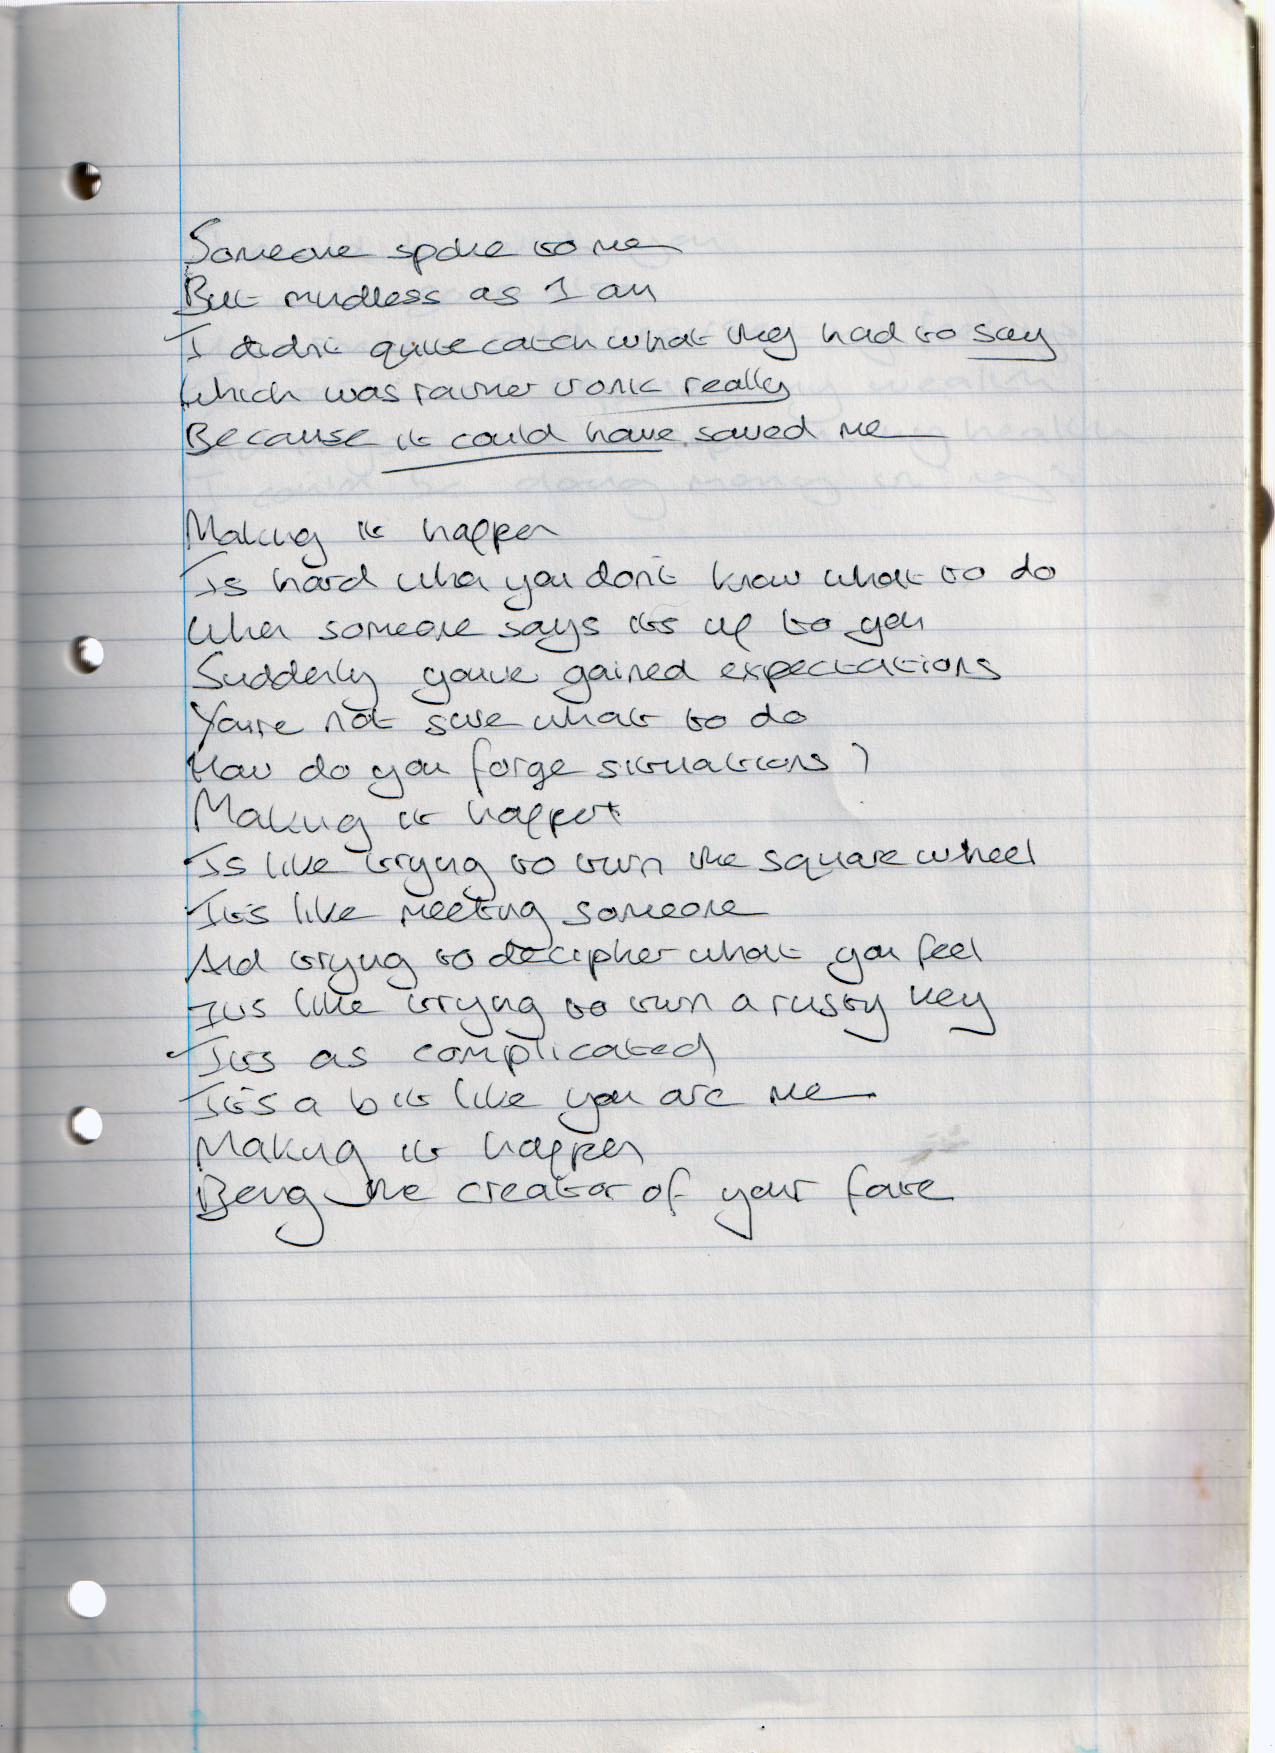 Someone spoke to me
But mindless as I am
I didn't quite catch what they had to say
Which was rather ironic really
Because it could have saved me
Making it happen
Is hard when you don't know what to do
When someone says its up to you
Suddenly youve gained expectations
You're not sure what to do
How do you forge situations?
Making it happen
Is like trying to turn the square wheel
It's like meeting someone
And trying to decipher what you feel
Its like trying to turn a rusty key
Its as complicated
It's a bit like you are me
Making it happen
Being the creator of your fate